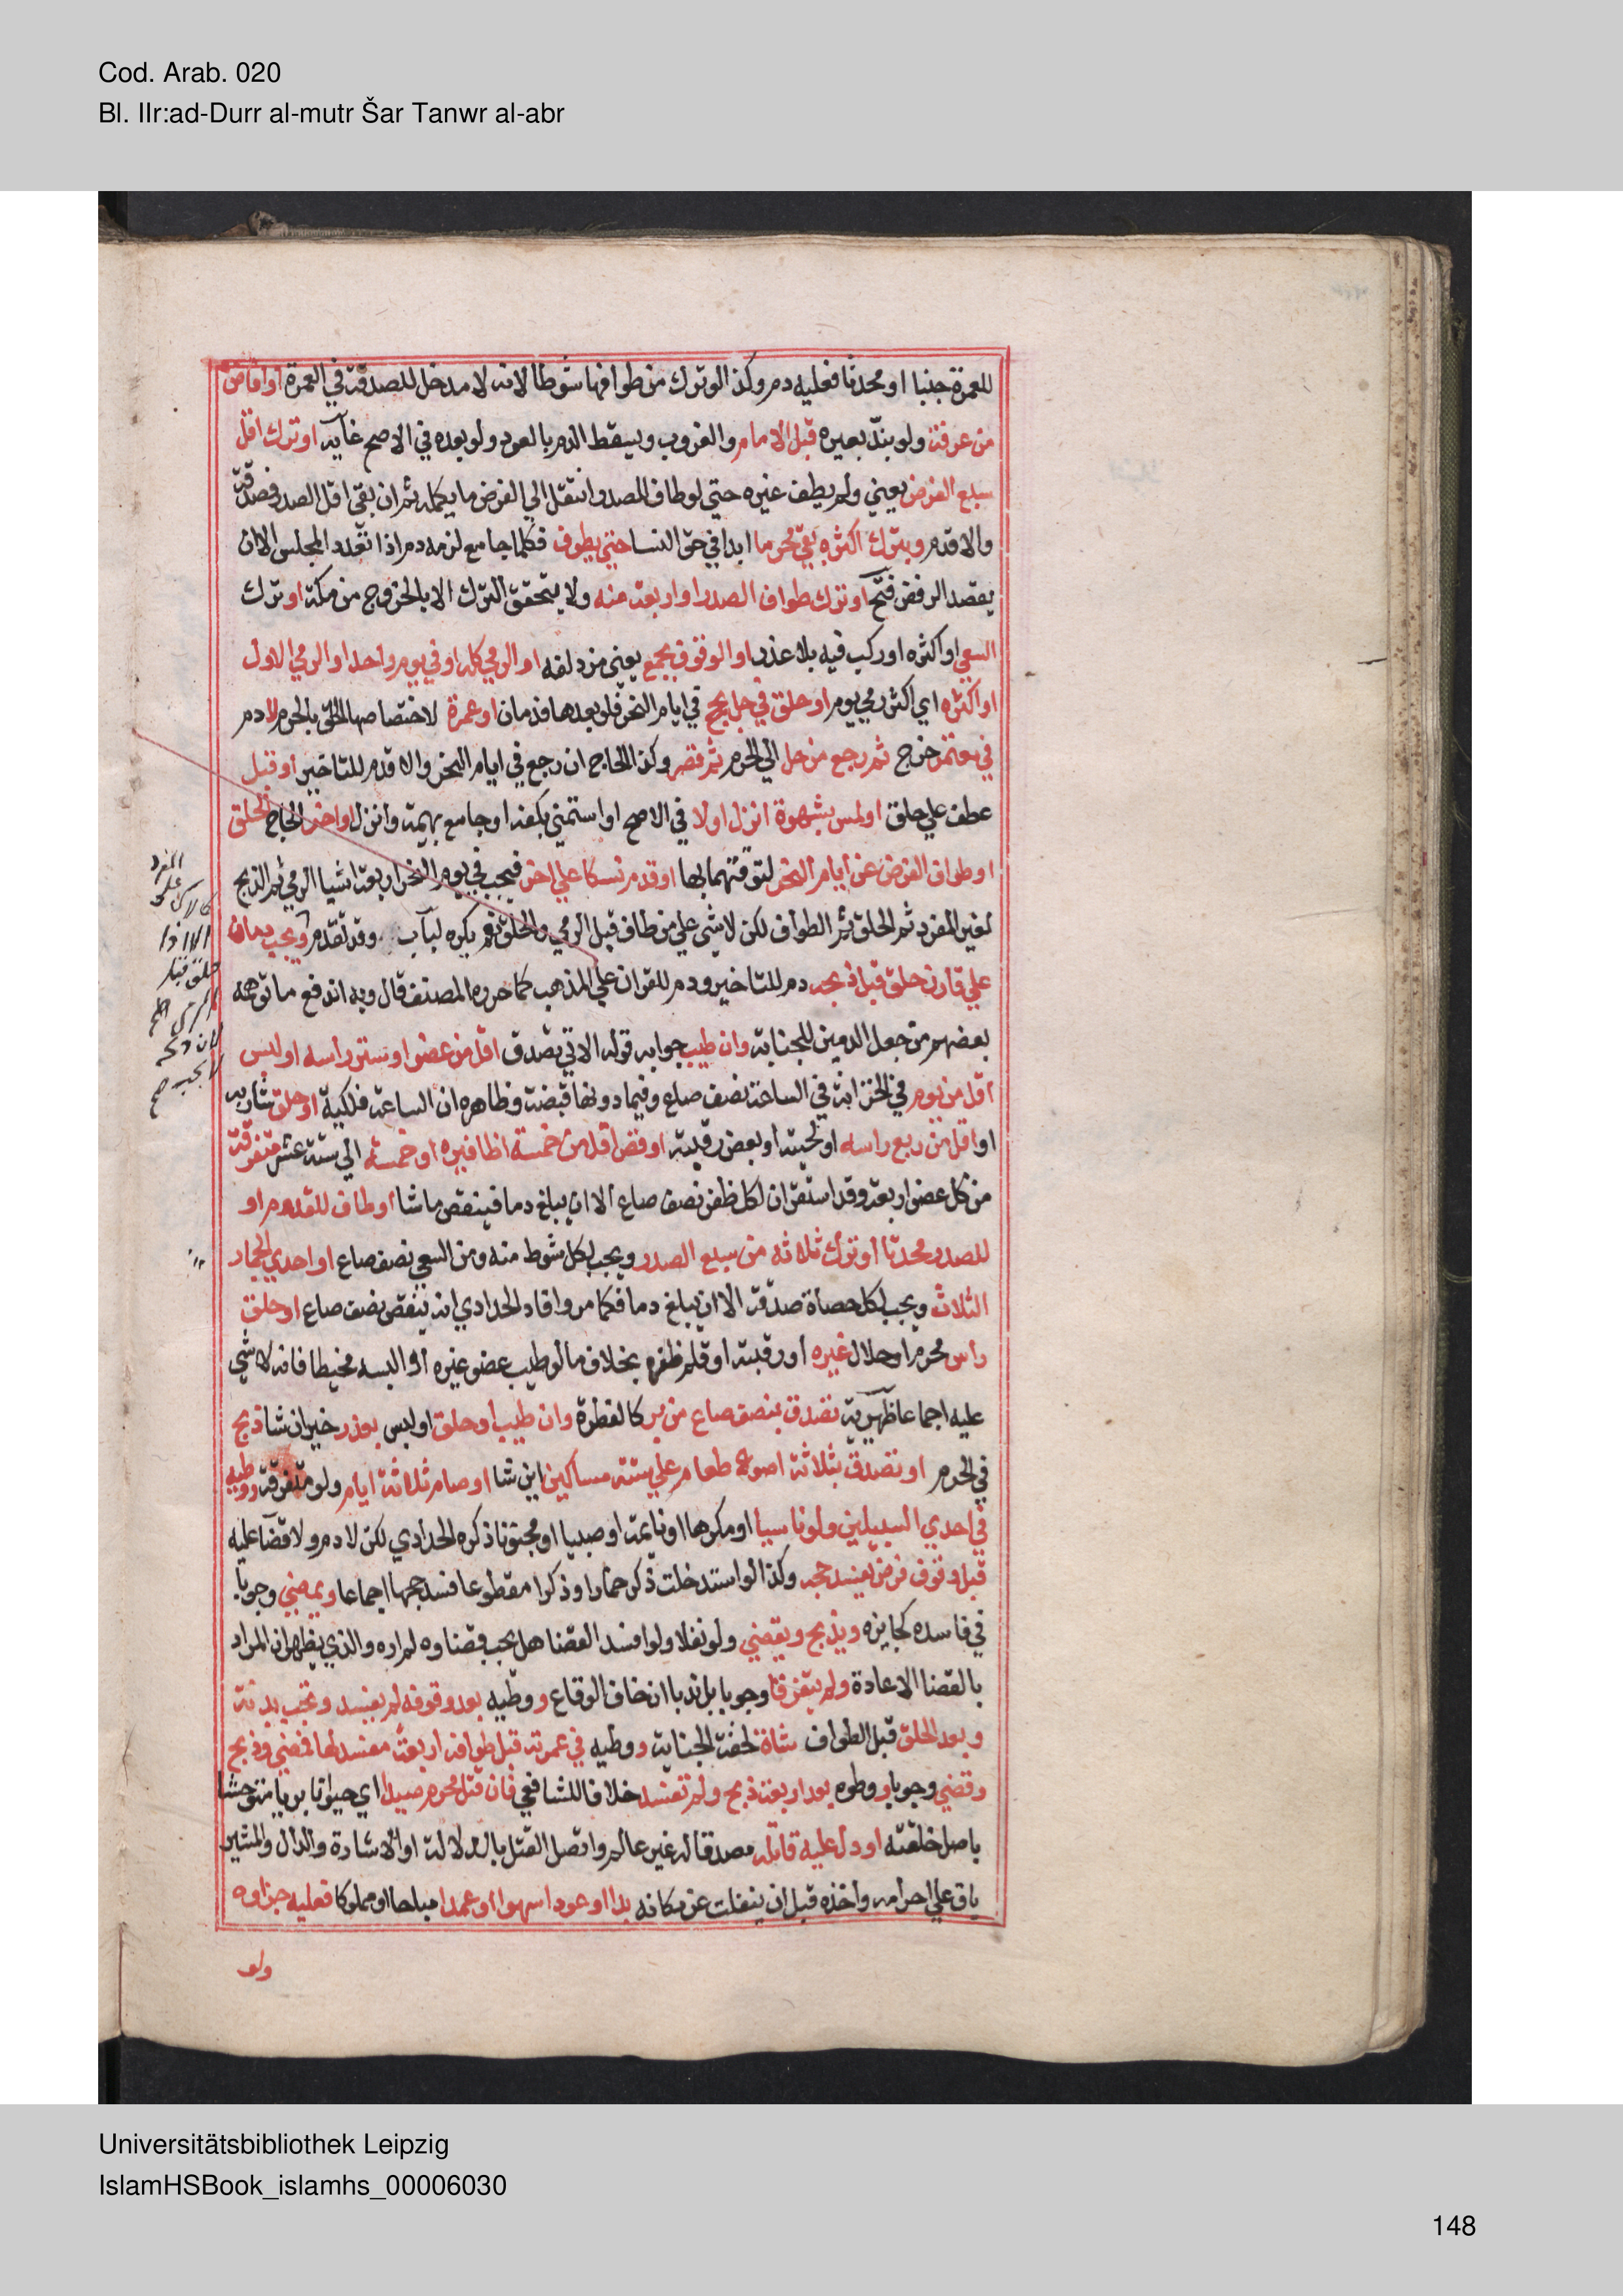 Cod. Arab. 020
Bl. IIr:ad-Durr al-mutr Šar Tanwr al-abr
للعمرة جنبا او محدثا فعليه دم وكذا لو ترك من طوافها شوطا لانه لا مدخل للصدقة في العمرة او افاض
من عرفة ولو بندّ بعيره قبل الامام والغروب ويسقط الدم بالعود ولو بعده في الاصح غاية او ترك اقل
سبع الفرض يعني ولم يطف غيره حتي لو طاف للصدر انتقل الي الفرض ما يكمله ثم ان بقي اقل الصدر فصدقة
والا فدم وبترك اكثره بقي محرما ابدا في حق النسا حتي يطوف فكلما جامع لزمه دم اذا تعدد المجلس الا ان
يقصد الرفض فتح او ترك طواف الصدر او اربعة منه ولا يتحقق الترك الا بالخروج من مكة او ترك
السعي او اكثره او ركب فيه بلا عذر او الوقوف بجمع يعني مزدلفه او الرمي كله او في يوم واحد او الرمي الاول
او اكثره اي اكثر رمي يوم او حلق في حل بحج في ايام النحر فلو بعدها فدمان او عمرة لاختصاصها الحلق بالحرم لا دم
في معتمر خرج ثم رجع من حل الي الحرم ثم قصر وكذا الحاج ان رجع في ايام النحر والا فدم للتاخير او قبل
عطف علي حلق او لمس بشهوة انزل او لا في الاصح او استمني بكفه او جامع بهيمة وانزل او اخر الحاج الحلق
او طواف الفرض عن ايام النحر لتوقتهما بها او قدم نسكا علي اخر فيجب في يوم النحر اربعة اشيا الرمي ثم الذبح
لغير المفرد ثم الحلق ثم الطواف لكن لا شي علي من طاف قبل الرمي والحلق نعم يكره لباب وقد تقدم ويجب دمان
علي قارن حلق قبل ذبحه دم للتاخير ودم للقران علي المذهب كما حرره المصنف قال وبه اندفع ما توهمه
بعضهم من جعل الدمين للجناية وان طيب جوابه قوله الاتي تصدق اقل من عضو او ستر راسه او لبس
اقل من يوم في الخزانة في الساعة نصف صاع وفيما دونها قبضة وظاهره ان الساعة فلكية او حلق شاربه
او اقل من ربع راسه او لحيته او بعض رقبته او قص اقل من خمسة اظافيره او خمسة الي ستة عشر متفرقة
من كل عضو اربعة وقد استقر ان لكل ظفر نصف صاع الا ان يبلغ دما فينقص ما شا او طاف للقدوم او
للصدر محدثا او ترك ثلاثة من سبع الصدر ويجب لكل شوط منه ومن السعي نصف صاع او احدي الجمار
الثلاث ويجب لكل حصاة صدقة الا ان يبلغ دما فكما مر وافاد الحدادي انه ينقص نصف صاع او حلق
راس محرم او حلال غيره او رقبته او قلم ظفره بخلاف ما لو طيب عضو غيره او البسه مخيطا فانه لا شي
عليه اجماعا ظهيرية تصدق بنصف صاع من بر كالفطرة وان طيب او حلق او لبس بعذر خير ان شا ذبح
في الحرم او تصدق بثلاثة اصوع طعام علي ستة مساكين اين شا او صام ثلاثة ايام ولو متفرقة ووطيه
في احدي السبيلين ولو ناسيا او مكرها او نايمة او صبيا او مجنونا ذكره الحدادي لكن لا دم ولا قضا عليه
قبل وقوف فرض يفسد حجه وكذا لو استدخلت ذكر حمار او ذكرا مقطوعا فسد حجها اجماعا ويمضي وجوبا
في فاسده كجايزه ويذبح ويقضي ولو نفلا ولو افسد القضا هل يجب قضاوه لم اره والذي يظهر ان المراد
بالقضا الاعادة ولم يتفرقا وجوبا بل ندبا ان خاف الوقاع ووطيه بعد وقوفه لم يفسد وتجب بدنة
وبعد الحلق قبل الطواف شاة لخفة الجناية ووطيه في عمرته قبل طوافه اربعة مفسد لها فمضي وذبح
وقضي وجوبا ووطوه بعد اربعة ذبح ولم تفسد خلافا للشافعي فان قتل محرم صيدا اي حيوانا بريا متوحشا
باصل خلقته او دل عليه قاتله مصدقا له غير عالم واتصل القتل بالدلالة او الاشارة والدال والمشير
باق علي احرامه واخذه قبل ان ينفلت عن مكانه بدا او عودا سهوا او عمدا مباحا او مملوكا فعليه جزاوه
ولو
المفرد
الا اذا
حلق قبل
لان ذبحه
لا يجب صح
Universitätsbibliothek Leipzig
IslamHSBook_islamhs_00006030
148